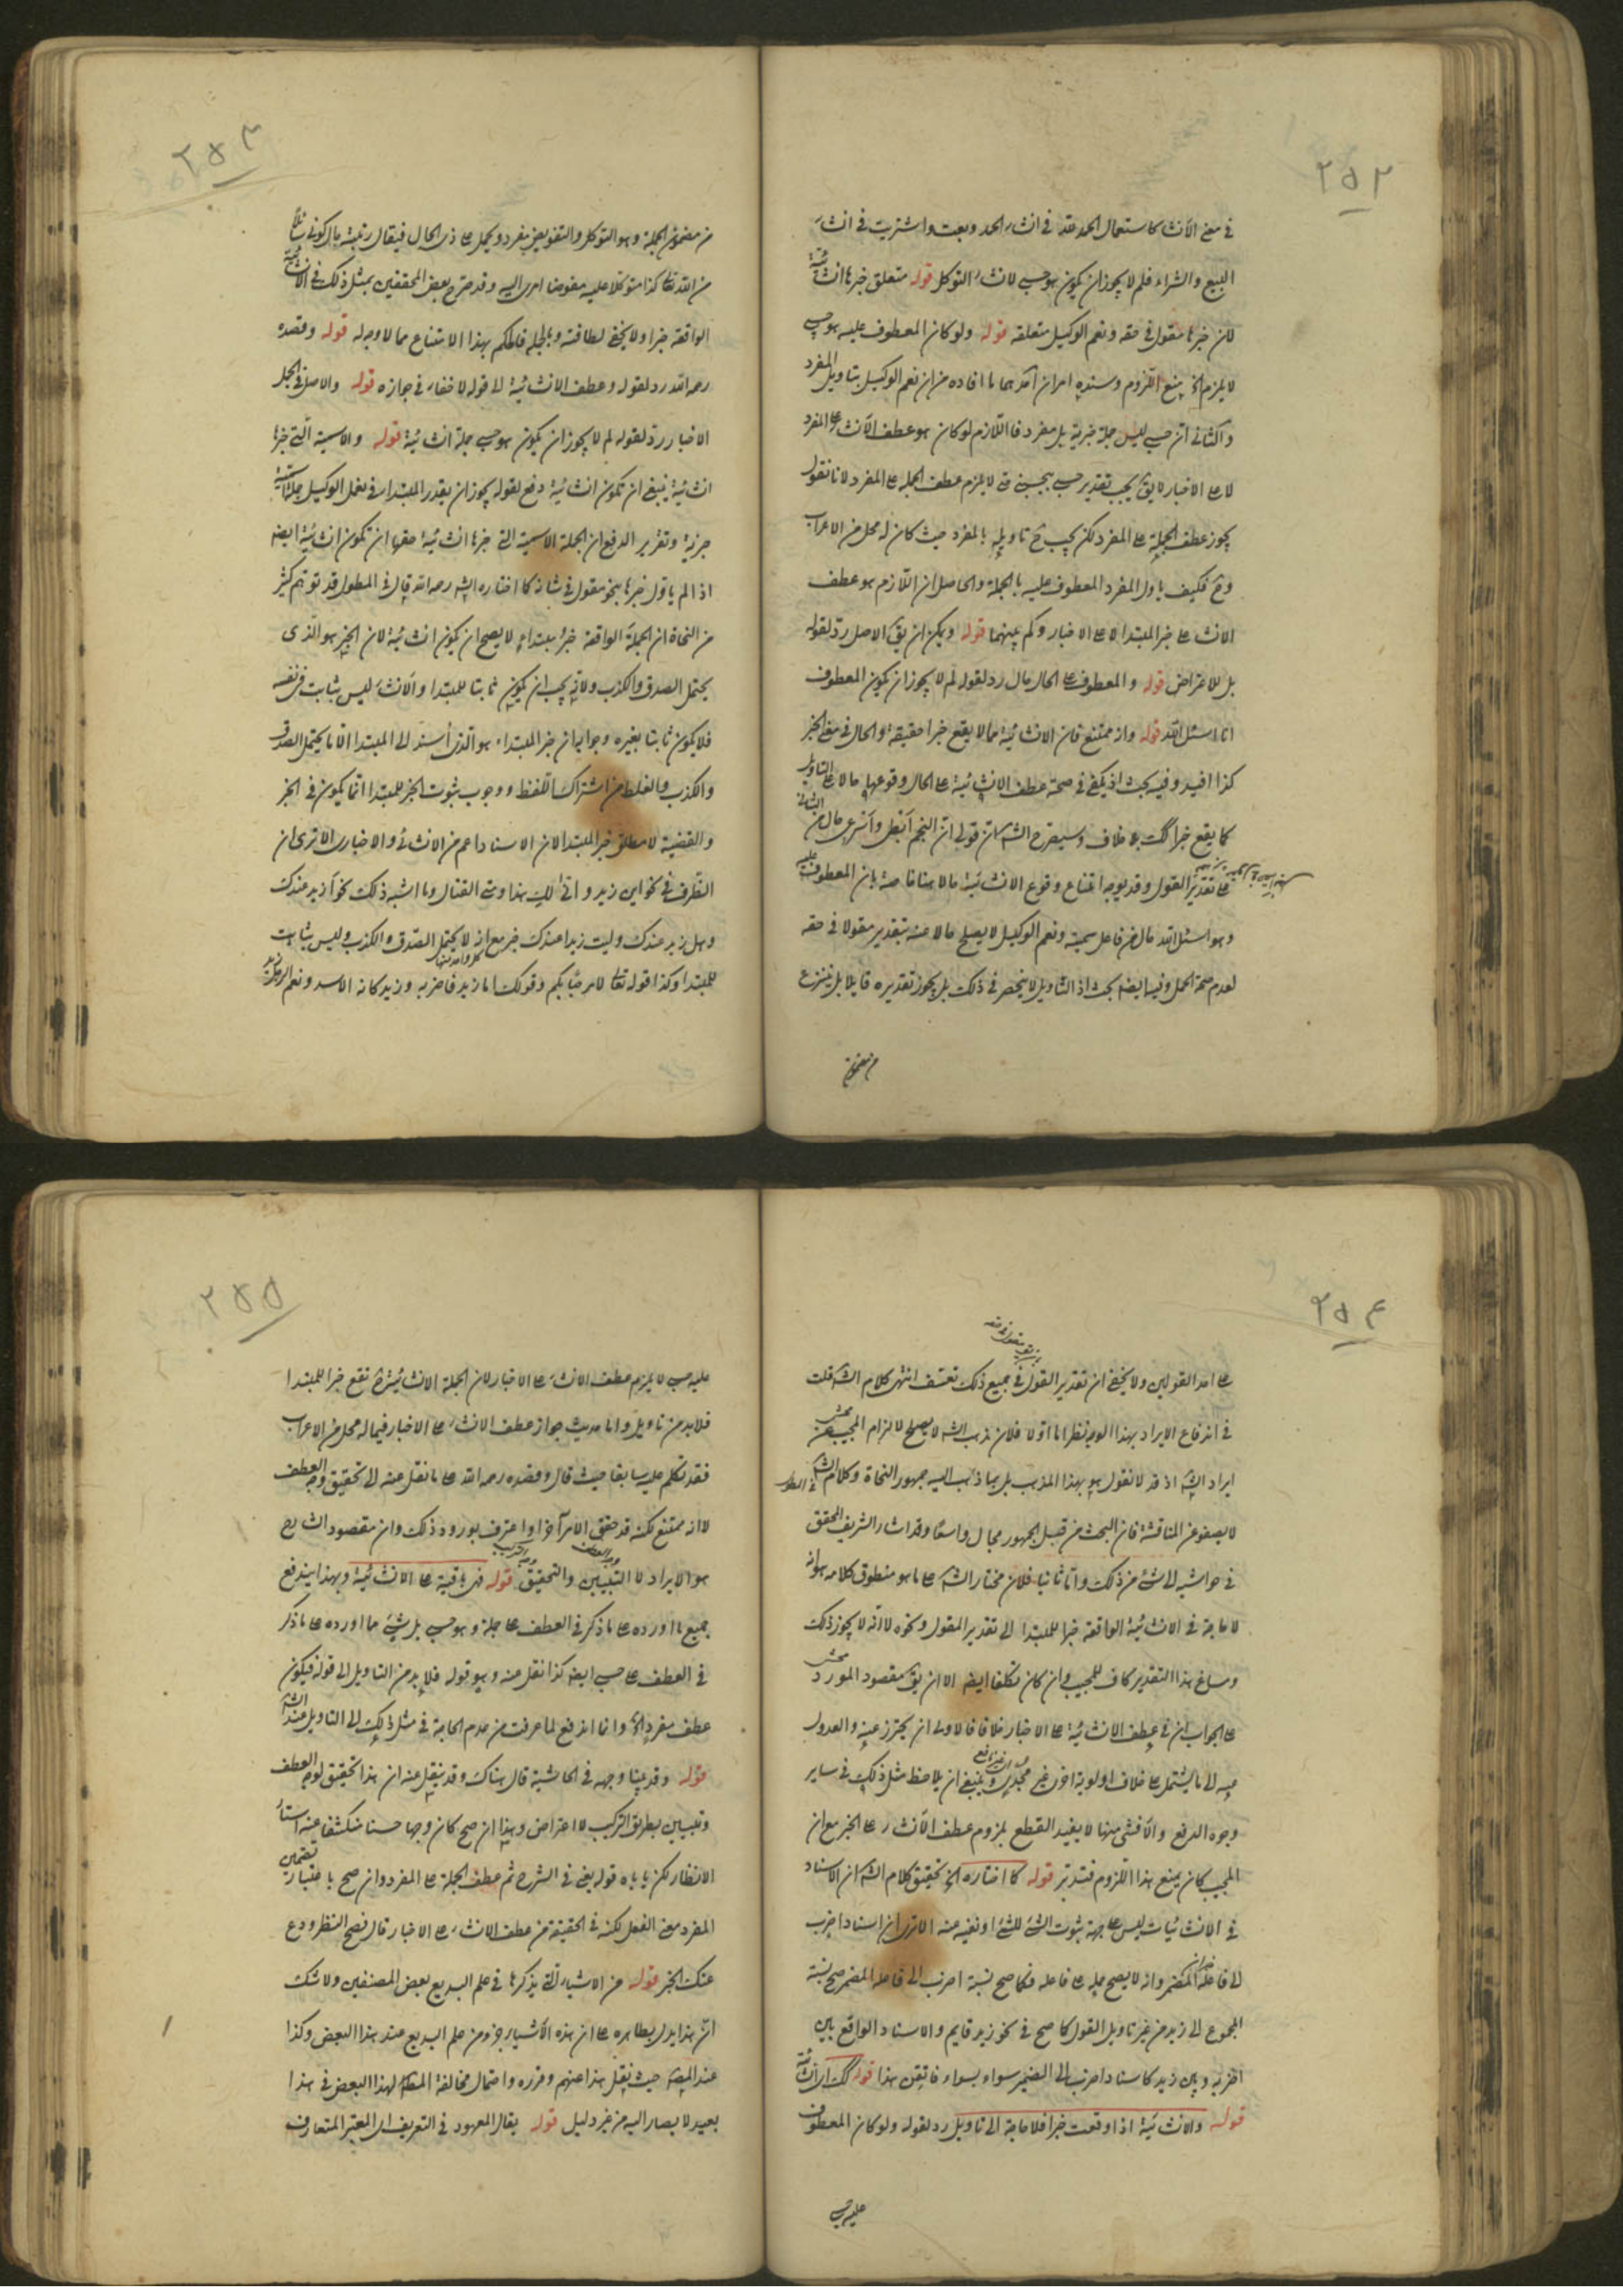 ٢٥٢
في معنى الانشاء كاستعمال الحمد لله في انشاء الحمد وبعت واشتريت في انشاء
البيع والشراء فلم لا يجوز ان يكون هو حسبي لانشاء التوكل قوله متعلق خبرها انشائية
لان خبرها مقول في حقه ونعم الوكيل متعلقه قوله ولو كان المعطوف عليه هو حسبي
لا يلزم الخ يمنع اللزوم وسنده امران احدهما ما افاده من ان نعم الوكيل بتاويل المفرد
والثاني ان حسبي ليس جملة خبرية بل مفرد فاللازم لو كان هو عطف الانشاء على المفرد
لا على الاخبار لا يق يجب تقدير حسبي بيحسبني فلا يلزم عطف الجملة على المفرد لانا نقول
يجوز عطف الجملة على المفرد لكن يجب ح تاويله بالمفرد حيث كان له محل من الاعراب
وح فكيف ياول المفرد المعطوف عليه بالجملة والحاصل ان اللازم هو عطف
الانشاء على خبر المبتدا لا على الاخبار وكم بينهما قوله ويمكن ان يق الاصل رد لقوله
بل للاعتراض قوله والمعطوف على الحال حال رد لقوله لم لا يجوز ان يكون المعطوف
انا اسئل الله قوله وانه ممتنع فان الانشائية مما لا يقع خبرا حقيقة والحال في معنى الخبر
كذا افيد وفيه بحث اذ يكفي في صحة عطف الانشائية على الحال وقوعها حالا على التاويل
كما يقع خبرا كك على خلاف وسيصرح الشه ان قولي ان النجم ابطى واسرعي حال من الشاني
على تقدير القول وقد يوجه امتناع وقوع الانشائية حالا هنا خاصة بان المعطوف عليه
وهو اسئل الله حال من فاعل سميته ونعم الوكيل لا يصلح حالا عنه بتقدير مقولا في حقه
لعدم صحة الحمل وفيه ايضا بحث اذ التاويل لا ينحصر في ذلك بل يجوز تقديره قايلا بل ينتزع
من مضمون
٢٥٣
من مضمون الجملة وهو التوكل والتفويض مفرد ويحمل على ذي الحال فيقال رتبته حال كوني سائلا
من الله تعالى كذا متوكلا عليه مفوضا امري اليه وقد صرح بعض المحققين بمثل ذلك في الانشائية
الواقعة خبرا ولا يخفى لطافته وبالجملة فالحكم بهذا الامتناع مما لا وجه له قوله وقصده
رحمه الله رد لقوله وعطف الانشائية الى قوله لا خفاء في جوازه قوله والاصل في الجمل
الاخبار رد لقوله لم لا يجوز ان يكون هو حسبي جملة انشائية قوله والاسمية التي خبرها
انشائية ينبغي ان تكون انشائية دفع لقوله يجوز ان يقدر المبتدا في نعم الوكيل جملة اسمية
خبرية وتقرير الدفع ان الجملة الاسمية التي خبرها انشائية حقها ان تكون انشائية ايضا
اذا لم ياول خبرها بنحو مقول في شانه كما اختاره الشه رحمه الله قال في المطول قد توهم كثير
من النحاة ان الجملة الواقعة خبر مبتداء لا يصح ان يكون انشائية لان الخبر هو الذى
يحتمل الصدق والكذب ولانه يجب ان يكون ثابتا للمبتدا والانشاء ليس بثابت في نفسه
فلا يكون ثابتا بغيره وجوابه ان خبر المبتداء هو الذي أسند الى المبتدا لا ما يحتمل الصدق
والكذب والغلط من اشتراك اللفظ ووجوب ثبوت الخبر للمبتدا انما يكون في الخبر
والقضية لا مطلق خبر المبتدا لان الاسناد اعم من الانشائي والاخباري الا ترى ان
الظرف في نحو اين زيد وانى لك هذا ومتى القتال وما اشبه ذلك نحو أزيد عندك
وهل زيد عندك وليت زيدا عندك خبر مع انه لا يحتمل الصدق والكذب وليس بثابت
للمبتدا وكذا قوله تعالى لا مرحبا بكم وقولك اما زيد فاضربه وزيد كانه الاسد ونعم الرجل زيد
٢٥٤
بتقدير مقول في حقه
على احد القولين ولا يخفى ان تقدير القول في جميع ذلك تعسف انتهى كلام الشه قلت
في اندفاع الايراد بهذا الوجه نظر اما اولا فلان مذهب الشه لا يصلح لالزام المجيب عن
ايراد الشه اذ قد لا نقول هو بهذا المذهب بل بما ذهب اليه جمهور النحاة وكلام الشه في المطول
لا يصفو عن المناقشة فان البحث من قبل الجمهور مجال واسعا وقد اشار الشريف المحقق
في حواشيه الى شئ من ذلك واما ثانيا فلان مختار الشه على ما هو منطوق كلامه هو انه
لا حاجة في الانشائية الواقعة خبرا للمبتدا الى تقدير المقول ونحوه لا انه لا يجوز ذلك
ومساغ هذا التقدير كاف للمجيب وان كان تكلفا ايضا الا ان يق مقصود المورد
على الجواب ان في عطف الانشائية على الاخبار خلافا فالاولى ان يحترز عنه والعدول
عنه الى ما يشتمل على خلاف اولوية اخرى غير مجد وينبغي ان يلاحظ مثل ذلك في ساير
وجوه الدفع والا فشئ منها لا يفيد القطع بلزوم عطف الانشاء على الخبر مع ان
المجيب كان يمنع هذا اللزوم فتدبر قوله كما اختاره الخ تحقيق كلام الشه ان الاسناد
في الانشائيات ليس على جهة ثبوت الشئ للشئ او نفيه عنه الا ترى ان اسناد اضرب
الى فاعله المضمر وانه لا يصح حمله على فاعله فكما صح نسبة اضرب الى فاعله المضمر صح نسبة
المجموع الى زيد من غير تاويل القول كما صح في نحو زيد قايم والاسناد الواقع بين
اضربه وبين زيد كاسناد اضرب الى الضمير سواء بسواء فاتقن هذا قوله كك اي انشائية
قوله والانشائية اذا وقعت خبرا فلا حاجة الى تاويل رد لقوله ولو كان المعطوف
عليه حسبي
٢٥٥
عليه حسبي لا يلزم عطف الانشاء على الاخبار لان الجملة الانشائية لا تقع خبرا للمبتدا
فلا بد من تاويل واما حديث جواز عطف الانشاء على الاخبار فيما له محل من الاعراب
فقد تكلم عليه سابقا حيث قال وقصده رحمه الله على ما نقل عنه الى تحقيق وجه العطف
لا انه ممتنع لكنه قد حقق الامر آخرا واعترف بورود ذلك وان مقصود الشارح
هو الايراد لا التبيين والتحقيق قوله فهي باقية على الانشائية وبهذا يندفع
جميع ما اورده على ما ذكر في العطف على جملة وهو حسبي بل شئ مما اورده على ما ذكر
في العطف على حسبي ايضا كذا نقل عنه وهو قوله فلا بد من التاويل الى قوله فيكون
عطف مفرد الخ وانما اندفع لما عرفت من عدم الحاجة في مثل ذلك الى التاويل عند الشه
قوله وقد بينا وجهه في الحاشية قال هناك وقد ينقل عنه ان هذا تحقيق لوجه العطف
وتبيين بطريق التركيب لا اعتراض وهذا ان صح كان وجها حسنا منكشفا عنه استار
الانظار لكن ياباه قوله يعني في الشرح ثم عطف الجملة على المفرد وان صح باعتبار تضمين
المفرد معنى الفعل لكنه في الحقيقة من عطف الانشاء على الاخبار قال فصح النظر ودع
عنك الخبر قوله من الاشياء التي يذكرها في علم البديع بعض المصنفين ولا شك
ان هذا يدل بظاهره على ان هذه الاشياء جزء من علم البديع عند هذا البعض وكذا
عند المصه حيث نقل هذا عنهم وقرره واحتمال مخالفة المصه لهذا البعض في هذا
بعيد لا يصار اليه من غير دليل قوله يقال المعهود في التعريف اي المعتبر المتعارف